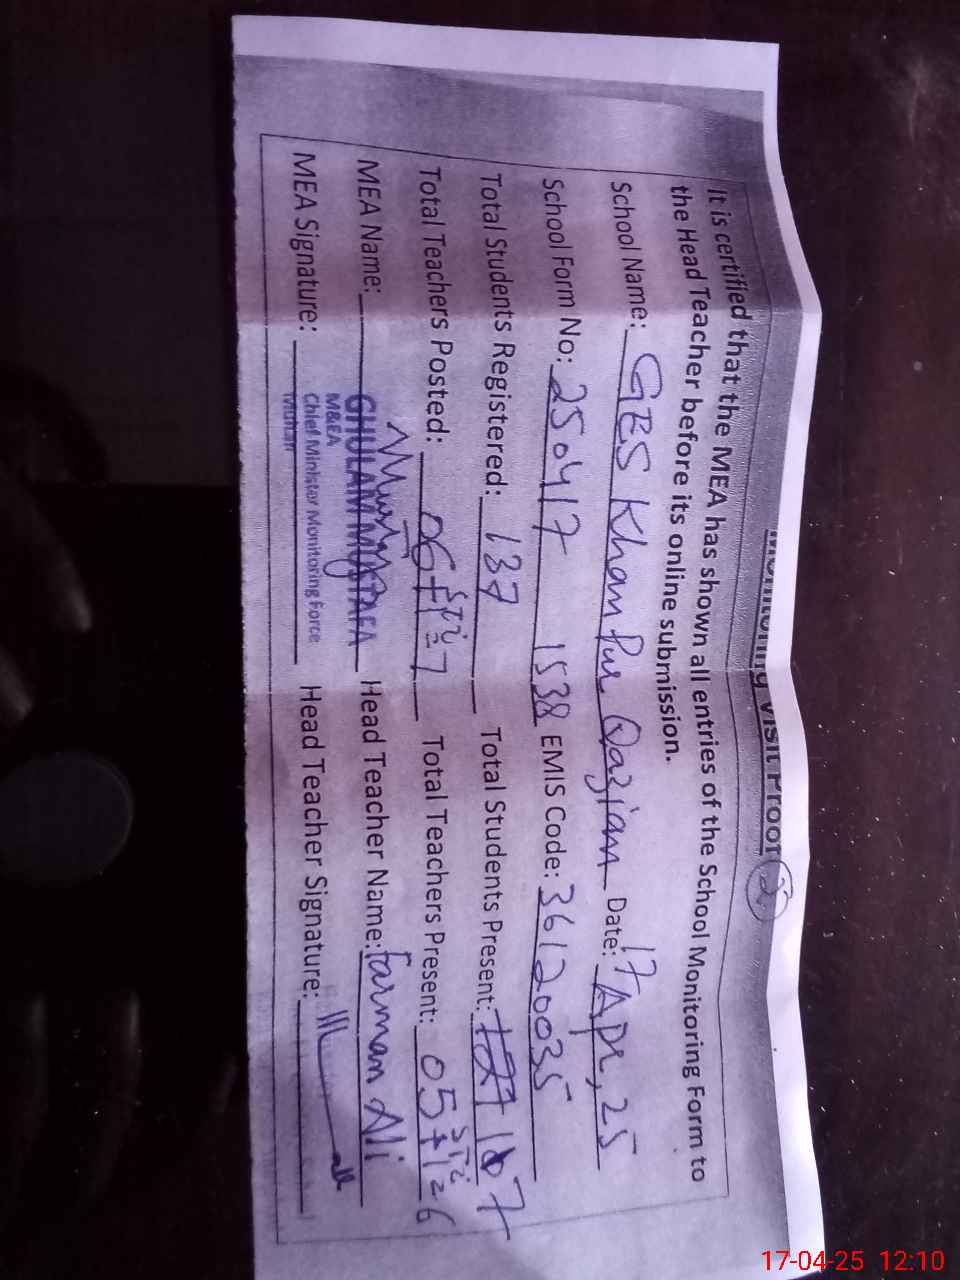 Monitoring Visit Proof 2
It is certified that the MEA has shown all entries of the School Monitoring Form to
the Head Teacher before its online submission.
School Name: GES Khan Pur Qazian Date: 17 Apr, 25
School Form No: 250417 1538 EMIS Code: 36120035
Total Students Registered: 137 Total Students Present: 127 107
Total Teachers Posted: 06+1=7 STI Total Teachers Present: 05+1=6 STI
MEA Name: GHULAM MUSTAFA Head Teacher Name: Farman Ali
M&EA
Chief Minister Monitoring Force
Multan
MEA Signature: Head Teacher Signature:
17-04-25 12:10